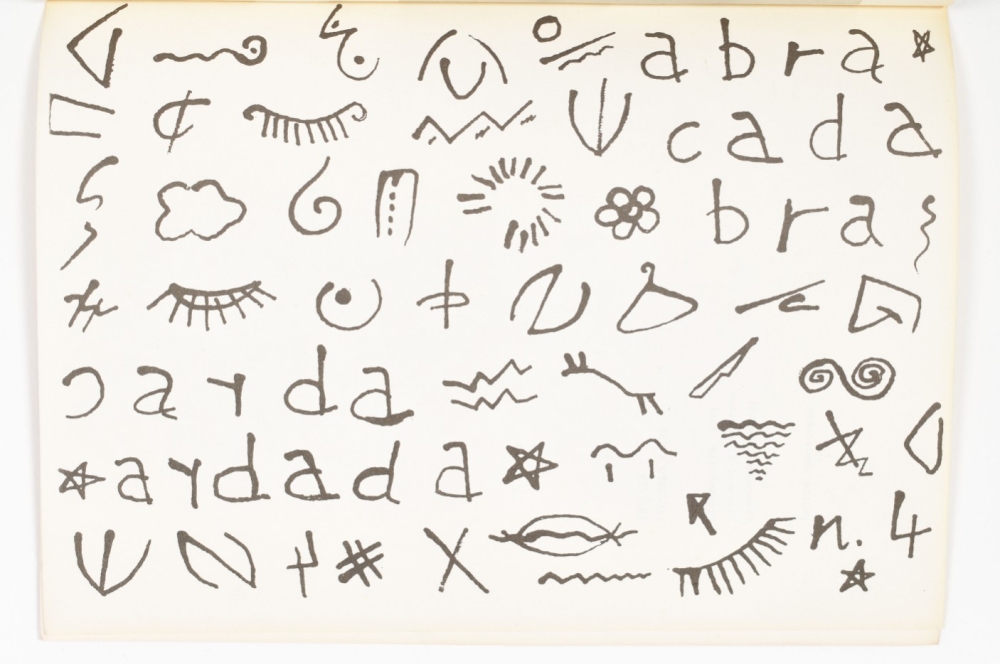 abra
cada
bra
ɔaɿda
aɿdada
n. 4